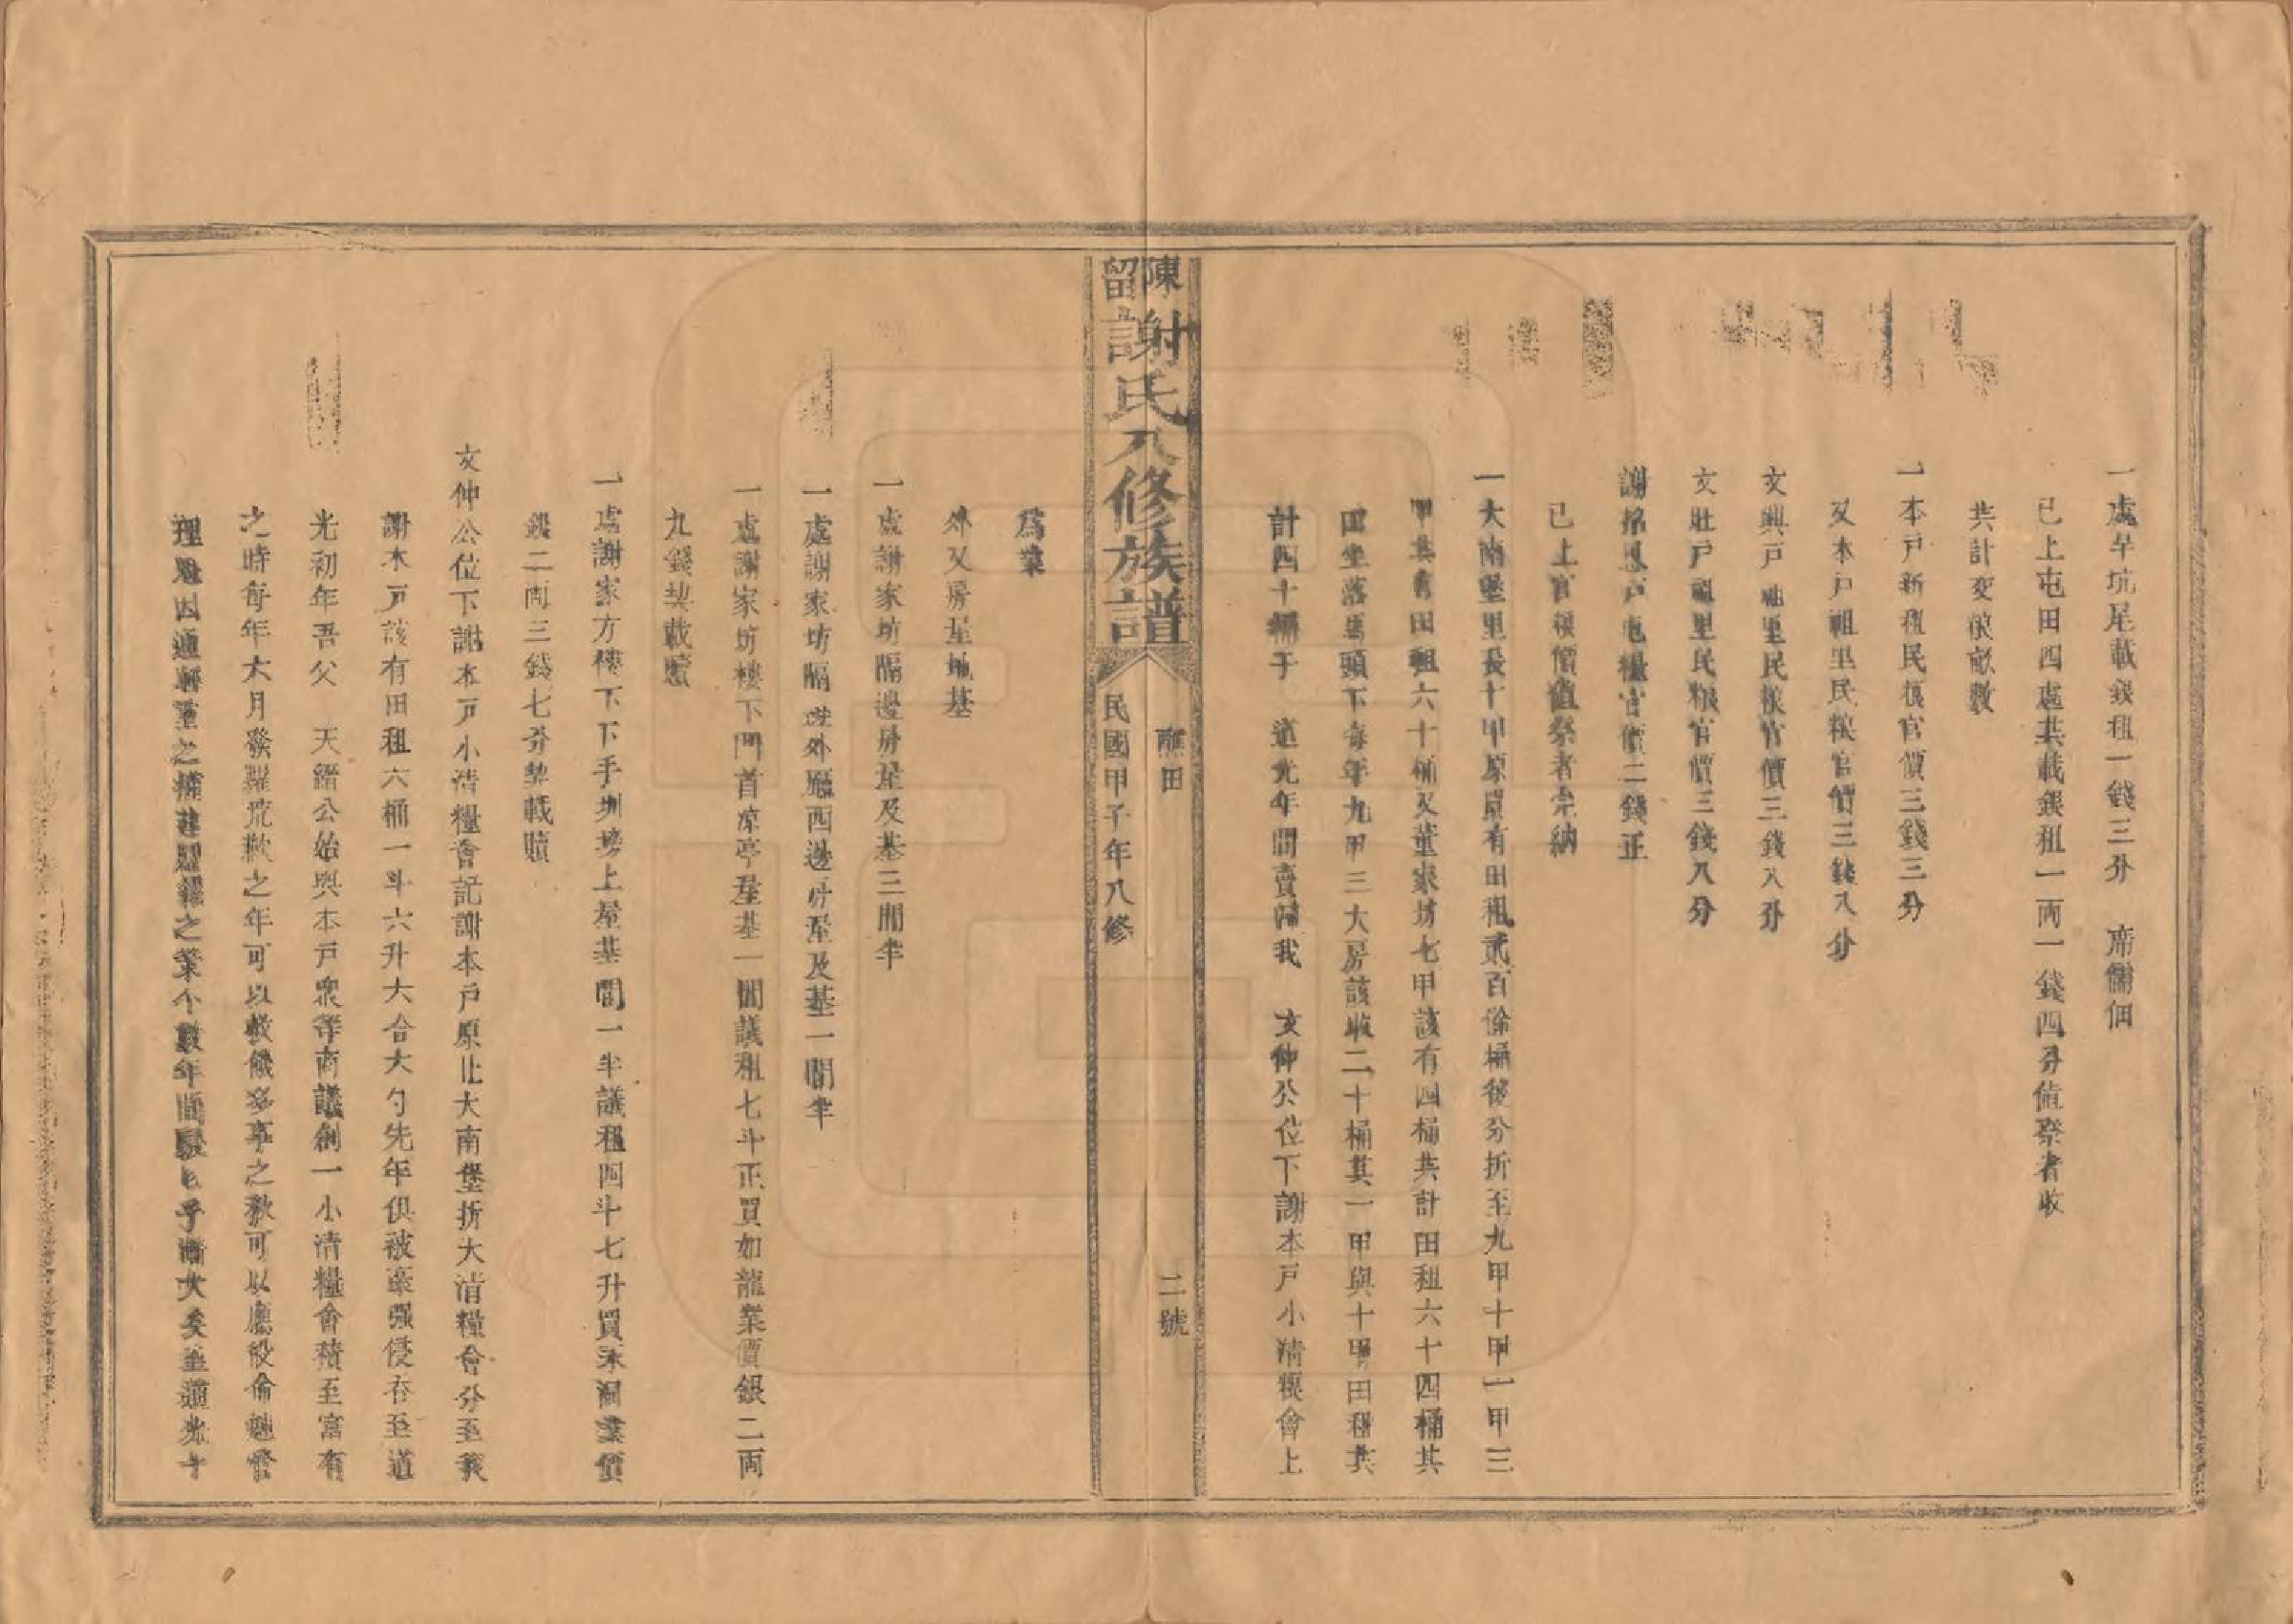 一處羊坑尾載銀租一錢三分 席儒佃
已上屯田四處共載銀租一兩一錢四分值祭者收
共計变粮畝數
一本戶新祖民粮官價三錢三分
又本戶祖里民粮官價三錢八分
文興戶祖里民粮官價三錢八分
文壯戶祖里民粮官價三錢八分
謝招恩戶屯糧官價二錢正
已上官粮價值祭者完納
一大南堡里長十甲原崽有田租貳百餘桶後分折至九甲十甲一甲三
甲共有田租六十桶又董家坊七甲該有四桶共計田租六十四桶其
田坐落馬頭下每年九甲三大房該收二十桶其一甲與十甲田租共
計四十桶于 道光年間賣歸我 文仲公位下謝本戶小清粮會上
陳留謝氏八修族譜
醮田
二號
民國甲子年八修
為業
外又房屋地基
一處謝家坊隔邊房屋及基三間半
一處謝家坊隔 外廳西邊房屋及基一間半
一處謝家坊樓下門首凉亭屋基一間議租七斗正買如龍業價銀二兩
九錢契載贖
一處謝家方樓下下手圳塝上屋基間一半議租四斗七升買 業價
銀二兩三錢七分契載贖
文仲公位下謝本戶小清糧會記謝本戶原止大南堡折大清糧會分至我
謝本戶該有田租六桶一斗六升大合大勺先年俱被豪强侵吞至道
光初年吾父 天縉公始與本戶眾等商議創一小清糧會積至富有
之時每年大月發糶荒歉之年可以救饑多事之秋可以應役倫魁督
理魁因 輕重之 之業不數年間 乎漸大矣至道光十